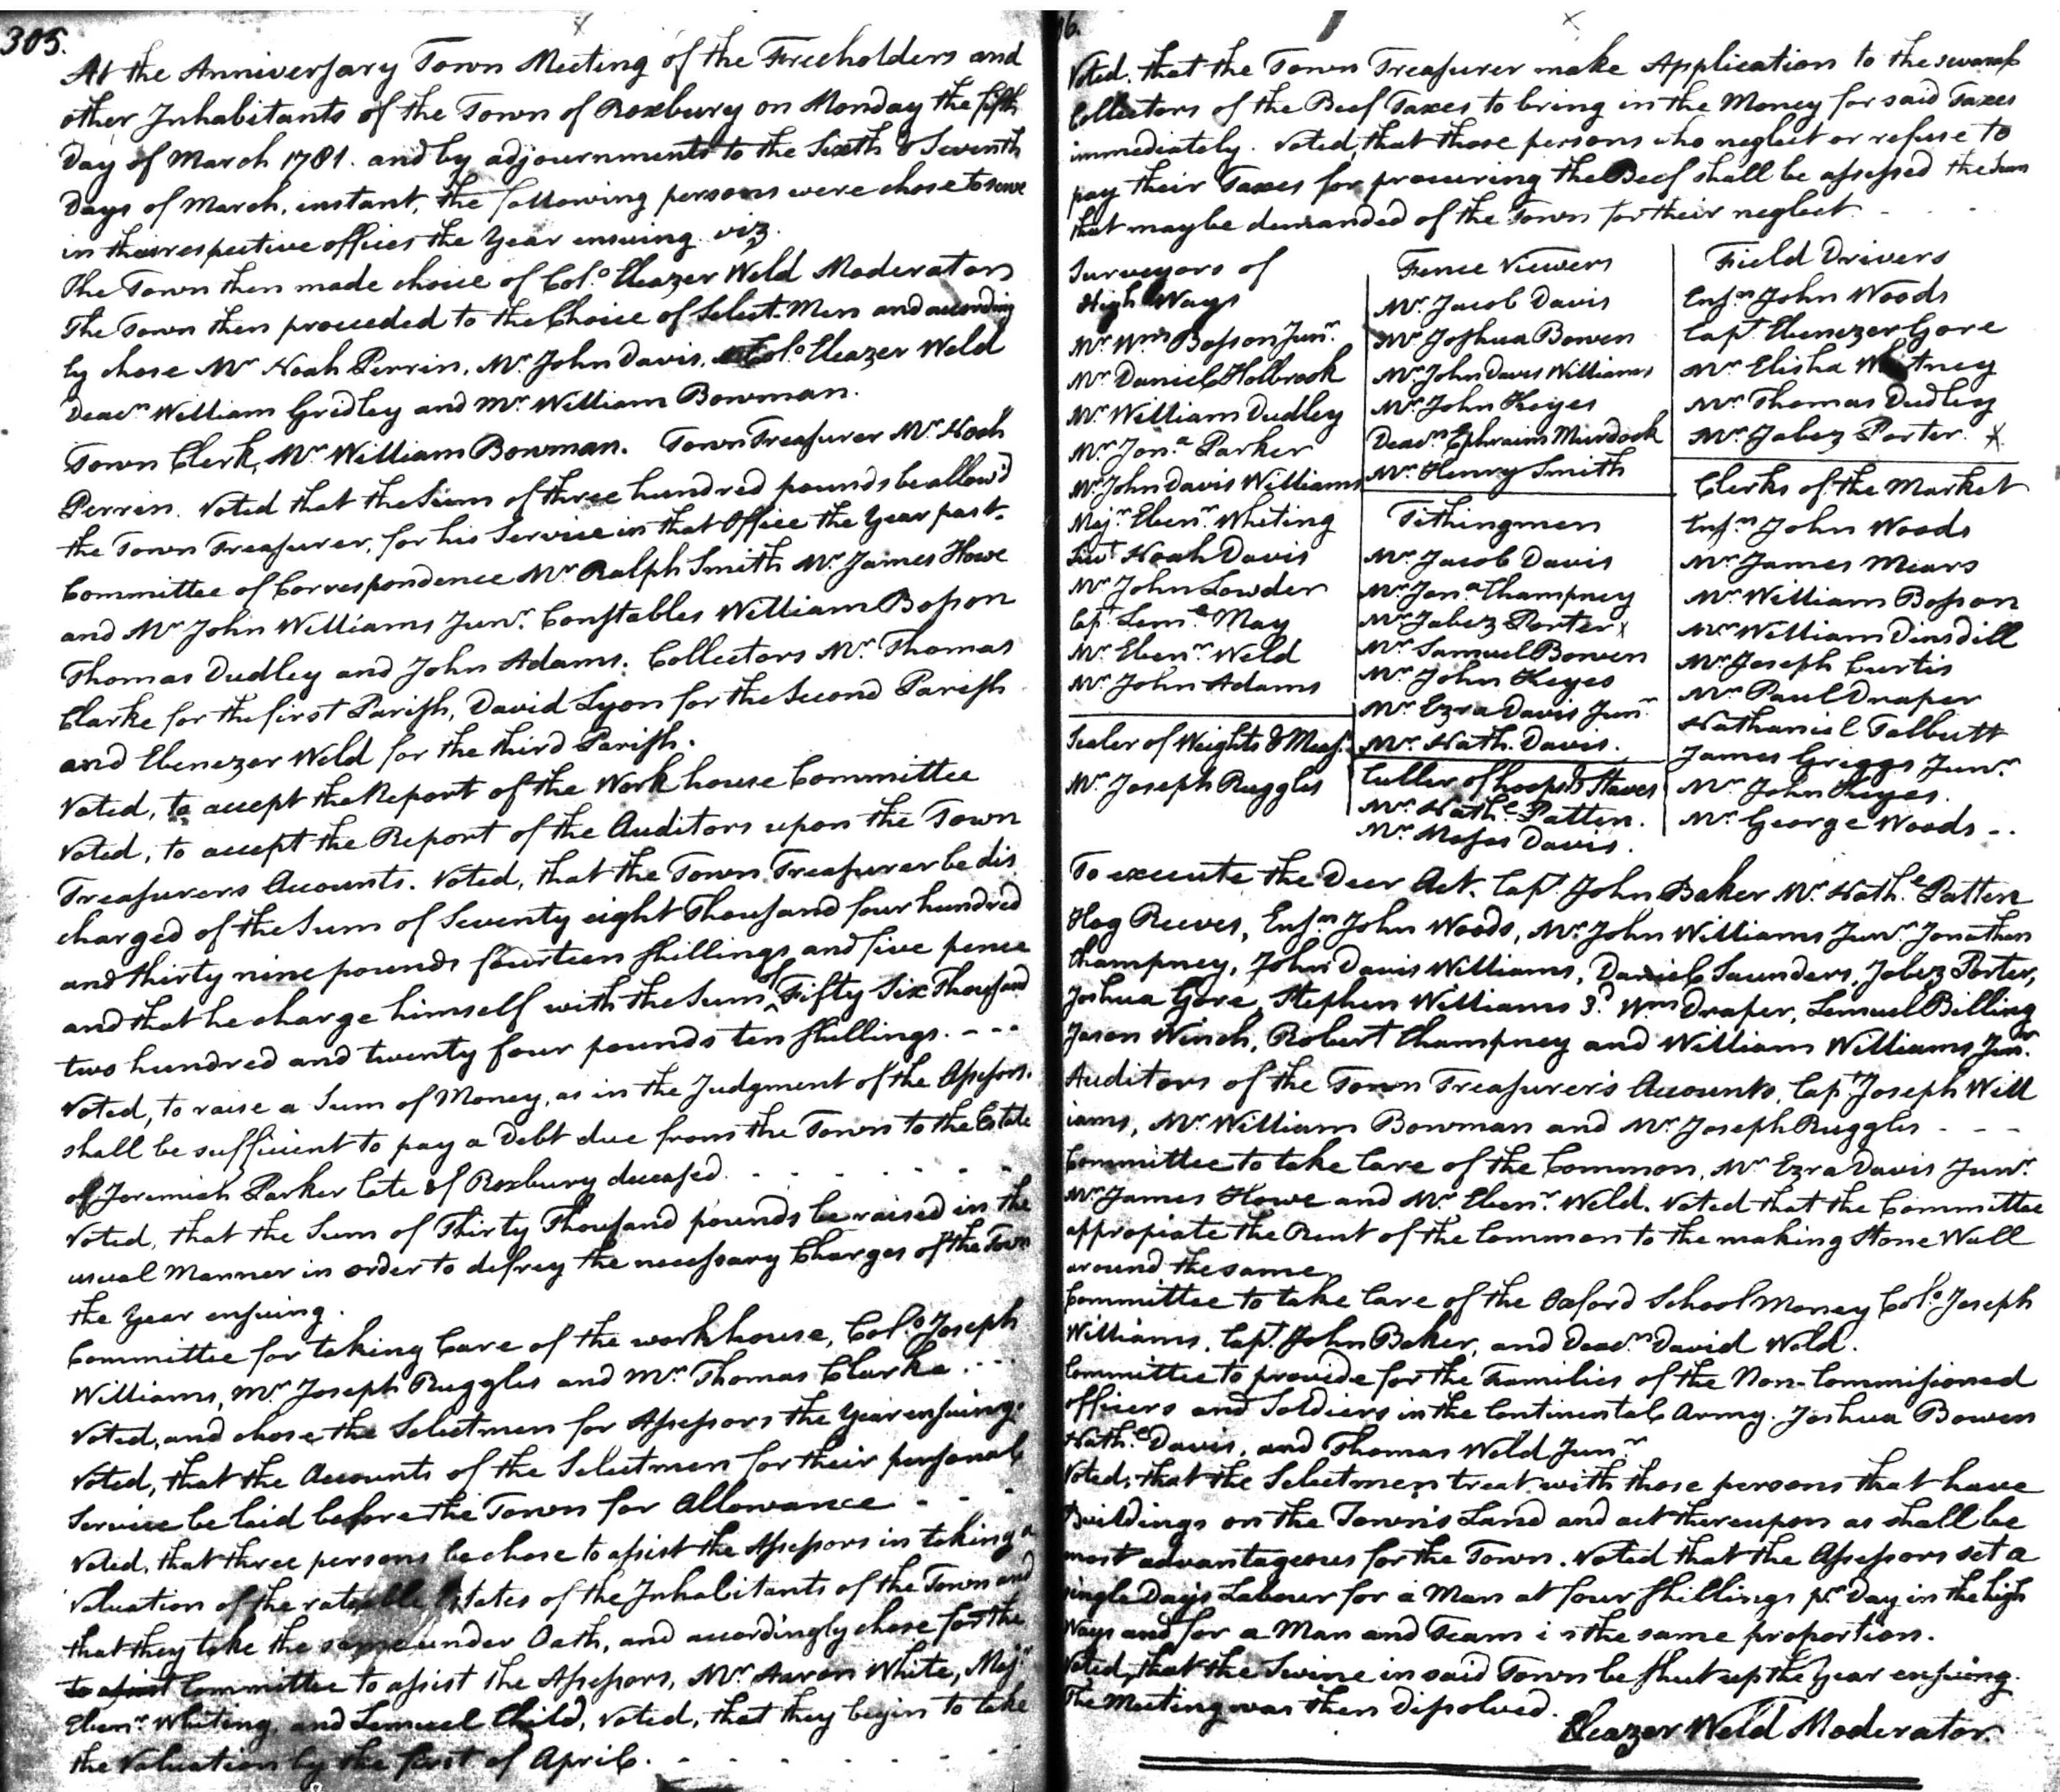 305.
At the Anniversary Town Meeting of the Freeholders and
other Inhabitants of the Town of Roxbury on Monday the fifth
Day of March 1781. and by adjournments to the Sixth & Seventh
Days of March, instant, the following persons were chose to serve
in their respective offices the Year ensuing viz.
The Town then made choice of Colo. Eleazer Weld Moderator
The Town then proceeded to the Choice of Select-Men and according
ly chose Mr Noah Perrin, Mr. John Davis, Colo. Eleazer Weld
Deacn William Gridley and Mr. William Bowman.
Town Clerk, Mr. William Bowman. Town Treasurer Mr. Noah
Perrin. Voted that the Sum of three hundred pounds be allow'd
the Town Treasurer, for his Service in that Office the Year past.
Committee of Correspondence Mr Ralph Smith Mr. James Howe
and Mr John Williams Junr. Constables William Bosson
Thomas Dudley and John Adams. Collectors Mr. Thomas
Clarke for the first Parish, David Lyon for the Second Parish
and Ebenezer Weld for the third Parish.
Voted, to accept the Report of the Work house Committee
Voted, to accept the Report of the Auditors upon the Town
Treasurers Accounts. Voted, that the Town Treasurer be dis
charged of the Sum of Seventy eight Thousand four hundred
and thirty nine pounds fourteen shillings and five pence
and that he charge himself with the Sum of Fifty Six Thousand
two hundred and twenty four pounds ten shillings. - - -
Voted, to raise a Sum of Money, as in the Judgment of the Assessors.
shall be sufficient to pay a Debt due from the Town to the Estate
of Jeremiah Parker late of Roxbury deceased. - - - - - -
Voted, that the Sum of Thirty Thousand pounds be raised in the
usual Manner in order to defrey the necessary Charges of the Town
the Year ensuing.
Committee for taking Care of the workhouse, Colo. Joseph
Williams, Mr. Joseph Ruggles and Mr. Thomas Clarke. - -
Voted, and chose the Selectmen for Assessors the Year ensuing.
Voted, that the Accounts of the Selectmen for their personal
Service be laid before the Town for Allowance - - -
Voted, that three persons be chose to assist the Assessors in taking a
Valuation of the rateable Estates of the Inhabitants of the Town and
that they take the same under Oath, and accordingly chose for the
to assist Committee to assist the Assessors, Mr. Aaron White, Majr.
Ebenr. Whiting, and Lemuel Child, Voted, that they begin to take
the Valuation by the first of April. - - - - - -
6.
Voted, that the Town Treasurer make Application to the several
Collectors of the Beef Taxes to bring in the Money for said Taxes
immediately. Voted, that those persons who neglect or refuse to
pay their Taxes for procuring the Beef shall be assessed the Sum
that may be demanded of the Town for their neglect. - - -
Surveyors of
High Ways
Mr. Wm Bosson Junr.
Mr. Daniel Holbrook
Mr. William Dudley
Mr. Jona. Parker
Mr. John Davis Williams
Majr. Ebenr. Whiting
Lieut Noah Davis
Mr. John Lowder
Capt. Leml. May
Mr. Ebenr. Weld
Mr. John Adams
Sealer of Weights & Meas.
Mr. Joseph Ruggles
Fence Viewers
Mr. Jacob Davis
Mr. Joshua Bowen
Mr. John Davis Williams
Mr. John Keyes
Deacn. Ephraim Murdock
Mr. Henry Smith
Tithingmen
Mr. Jacob Davis
Mr. Jona. Champney
Mr. Jabez Porter x
Mr. Samuel Bowen
Mr. John Keyes
Mr. Ezra Davis Junr.
Mr. Nath. Davis.
Culler of hoops & Staves
Mr. Nathl. Patten.
Mr. Moses Davis.
Field Drivers
Ensn. John Woods
Capt. Ebenezer Gore
Mr. Elisha Whitney
Mr. Thomas Dudley
Mr. Jabez Porter. x
Clerks of the Market
Ensn. John Woods
Mr. James Mears
Mr. William Bosson
Mr. William Dinsdill
Mr. Joseph Curtis
Mr. Paul Draper
Nathaniel Talbutt
James Griggs Junr.
Mr. John Keyes.
Mr. George Woods - .
To execute the Deer Act. Capt. John Baker Mr. Nathl. Patten
Hog Reeves, Ensn. John Woods, Mr. John Williams Junr. Jonathan
Champney, John Davis Williams, Daniel Saunders, Jabez Porter,
Joshua Gore, Stephen Williams 3d. Wm Draper, Lemuel Billing
Jason Winch, Robert Champney and William Williams Junr.
Auditors of the Town Treasurer's Accounts, Capt. Joseph Will
iams, Mr. William Bowman and Mr. Joseph Ruggles - - -
Committee to take Care of the Common, Mr Ezra Davis Junr.
Mr. James Howe and Mr. Ebenr. Weld. Voted that the Committee
appropiate the Rent of the Common to the making Stone Wall
around the same.
Committee to take Care of the Oxford School Money Colo. Joseph
Williams, Capt. John Baker, and Deacn. David Weld.
Committee to provide for the Families of the Non-Commissioned
officers and Soldiers in the Continental Army. Joshua Bowen
Nathl. Davis, and Thomas Weld Junr
Voted, that the Selectmen treat with those persons that have
Buildings on the Town's Land and act thereupon as shall be
most advantageous for the Town. Voted that the Assessors set a
single Day's Labour for a Man at four shillings pr. Day in the high
Ways and for a Man and Team in the same proportion.
Voted, that the Swine in said Town be shut up the Year ensuing.
The Meeting was then Dissolved.
Eleazer Weld Moderator.